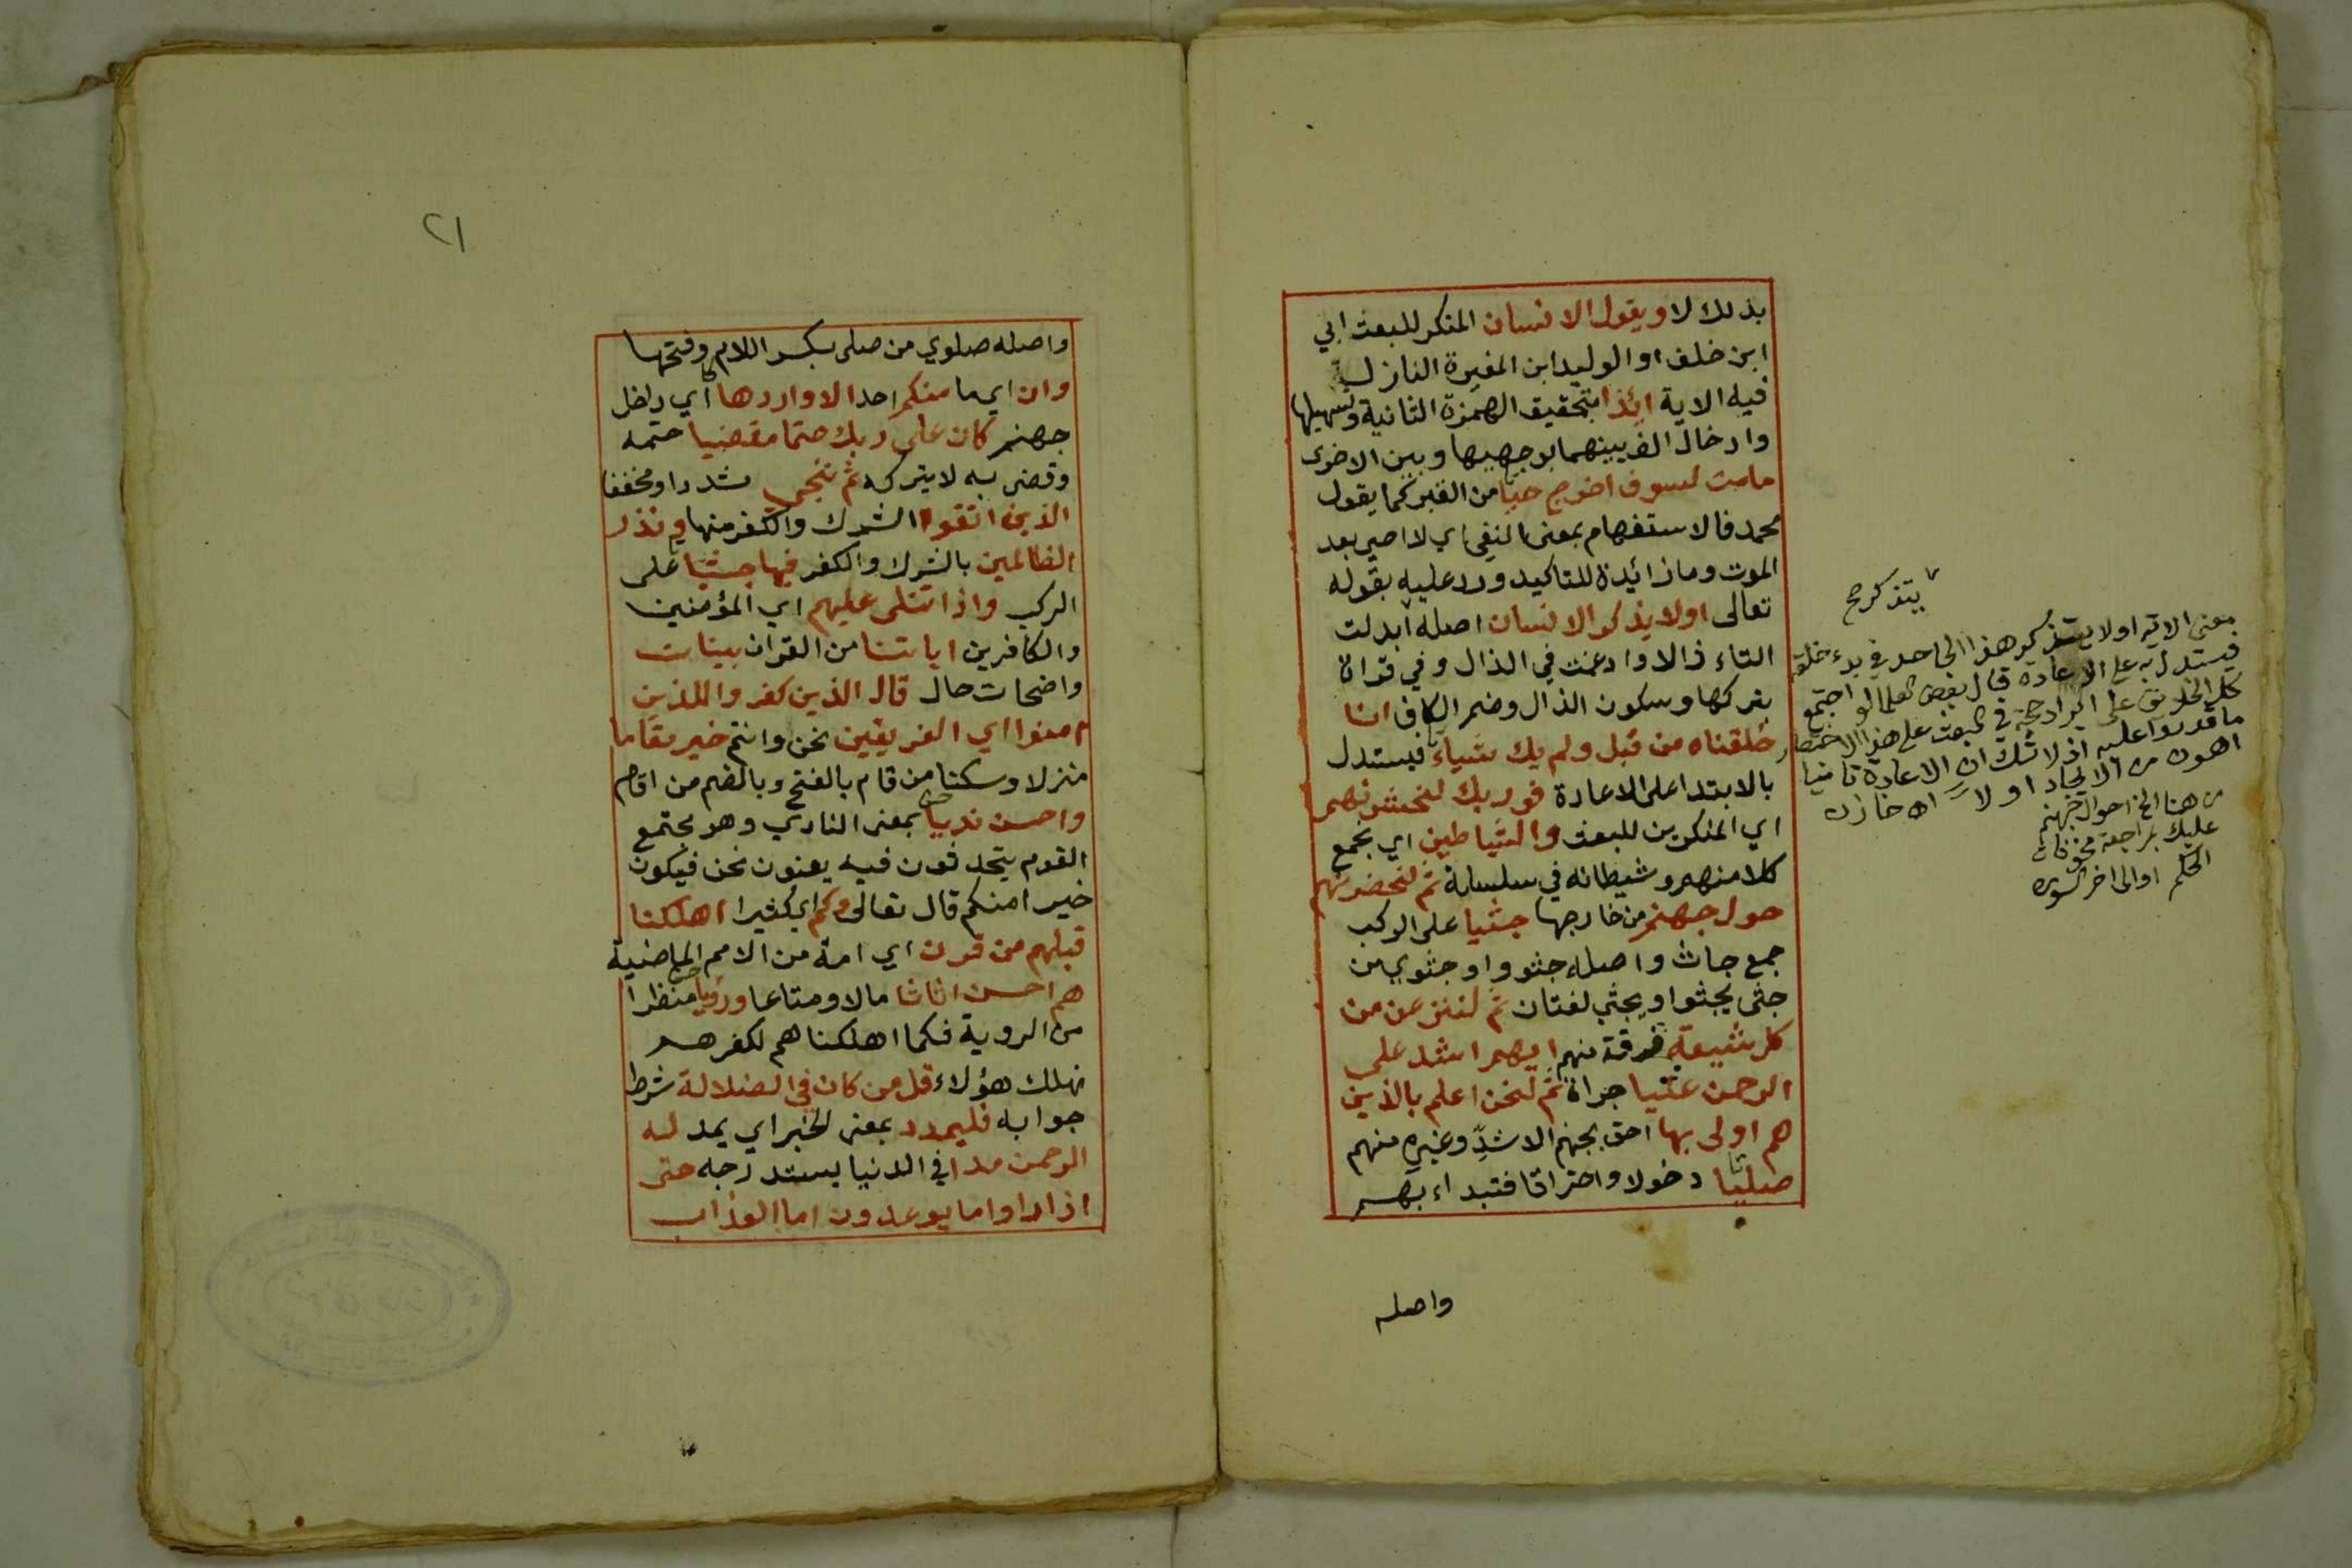 بذلك لا ويقول الانسان المنكر للبعث ابي
ابن خلف او الوليد ابن المغيرة النازل
فيه الاية ائذا بتحقيق الهمزة الثانية وتسهيلها
وادخال الف بينهما بوجهيها وبين الاخرى
مامت لسوف اخرج حيا من القبر كما يقول
محمد فالاستفهام بمعنى النفي اي لا احيى بعد
الموت وما زائدة للتاكيد ورد عليه بقوله
تعالى اولا يذكر الانسان اصله ابدلت
التاء ذالا وادغمت في الذال وفي قراة
بتركها وسكون الذال وضم الكاف انا
خلقناه من قبل ولم يك شياء فيستدل
بالابتدا على الاعادة فوربك لنحشرنهم
اي المنكرين للبعث والشياطين اي يجمع
كلا منهم وشيطانه في سلسلة ثم لنحضرنهم
حول جهنم من خارجها جثيا على الركب
جمع جاث واصله جثوو او جثوي من
جثى يجثوا ويجثي لغتان ثم لننزعن من
كل شيعة فرقة منهم ايهم اشد على
الرحمن عتيا جراة ثم لنحن اعلم بالذين
هم اولى بها احق بجهنم الاشد وغيره منهم
صليا دخولا واحتراقا فتبداء بهم
واصله
يتذكر صح
معنى الاية اولا يتذكر هذا الجاحد في بدء خلقه
فيستدل به على الاعادة قال بعض العلما لو اجتمع
كل الخلايق على ايراد حجة في البعث على هذا الاختصار
ما قدروا عليه اذ لا شك ان الاعادة ثانيا
اهون من الايجاد اولا اه خازن
من هنا الخ احوال جهنم
عليك بمراجعة
الحكم او الى اخر السورة
٢١
واصله صلوي من صلى بكسر اللام وفتحها
وان اي ما منكم احد الا واردها اي داخل
جهنم كان على ربك حتما مقضيا حتمه
وقضى به لا يتركه ثم ننجي مشددا ومخففا
الذين اتقوا الشرك والكفر منها ونذر
الظالمين بالشرك والكفر فيها جثيا على
الركب واذا تتلى عليهم اي المؤمنين
والكافرين اياتنا من القران بينات
واضحات حال قال الذين كفروا للذين
امنوا اي الفريقين نحن وانتم خير مقاما
منزلا وسكنا من قام بالفتح وبالضم من اقام
واحسن نديا بمعنى النادي وهو مجتمع
القوم يتحدثون فيه يعنون نحن فيكون
خيرا منكم قال تعالى وكم اي كثيرا اهلكنا
قبلهم من قرن اي امة من الامم الماضية
هم احسن اثاثا مالا ومتاعا ورؤيا منظرا
من الروية فكما اهلكناهم لكفرهم
نهلك هؤلاء قل من كان في الضلالة شرط
جوابه فليمدد بمعنى الخبر اي يمد له
الرحمن مدا في الدنيا يستدرجه حتى
اذا راوا ما يوعدون اما العذاب